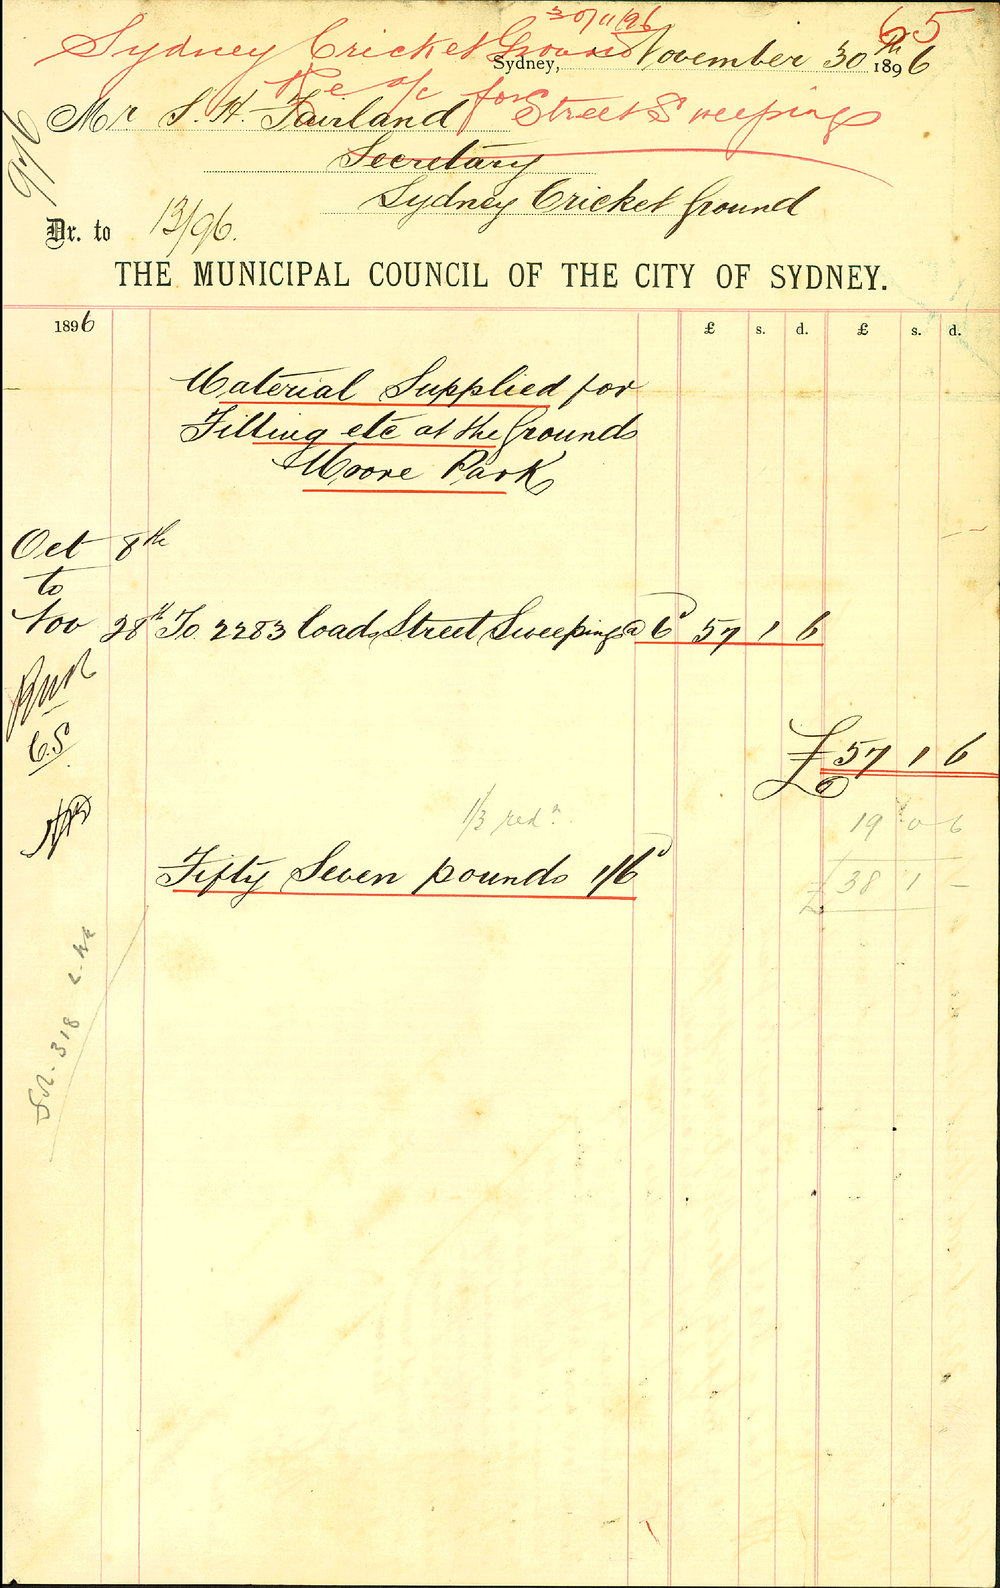 30/11/96
65
Sydney Cricket Ground
Sydney, November 30th 1896
Re a/c for Street Sweepings
Mr S. H. Fairland
Secretary
Sydney Cricket Ground
9/6
Dr. to 13/96.
THE MUNICIPAL COUNCIL OF THE CITY OF SYDNEY.
1896 £ s. d. £ s. d.
Material Supplied for
Filling etc at the Ground
Moore Park
Oct 8th
to
Nov 28th To 2283 loads Street Sweepings @ 6d 57 1 6
£57 1 6
1/3 redn. 19 0 6
Fifty Seven pounds 1/6d
£38 1 –
318